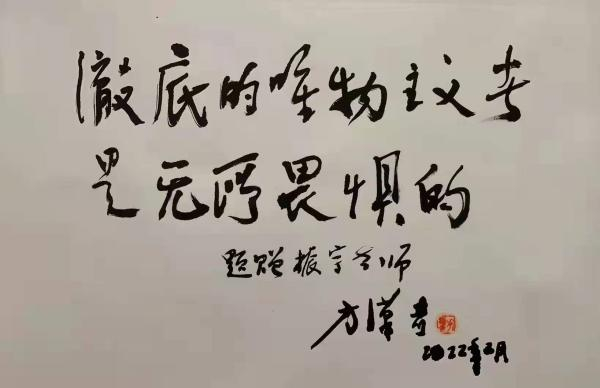 澈底的唯物主义者
是无所畏惧的
题赠振宇老师
方漢奇
2022年三月